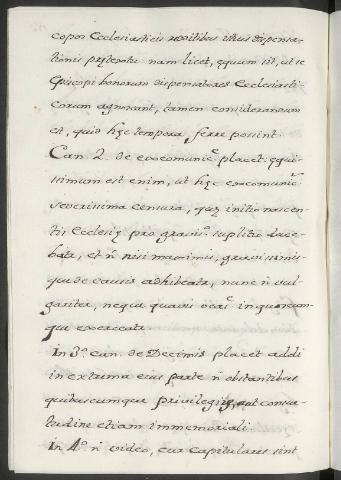 copos Ecclesiasticis redditibus istius dispensa-
tionis prætextu: nam licet, æquum sit, ut se
Episcopi bonorum dispensatores Ecclesiasti-
corum agnoscant, tamen considerandum
est, quid hęc tempora ferre possint.
Can. 2. de excomunic.e placet: ęquis-
simum est enim, ut hęc excomunic.o
severissima censura, quę initio nascen-
tis Ecclesię pro gravis.o suplitio duce-
batr, et ñ nisi maximis, gravissimis-
que de causis adhibeatr, nunc ñ vul-
gariter, neque quavis ocas.e in quoscum-
que exerceatr.
In 3.o can. de Decimis placet addi
in extrema eius parte ñ obstantibus
quibuscumque privilegijs, aut consue-
tudine etiam immemoriali.
In 4.o ñ video, cur capitulares sint